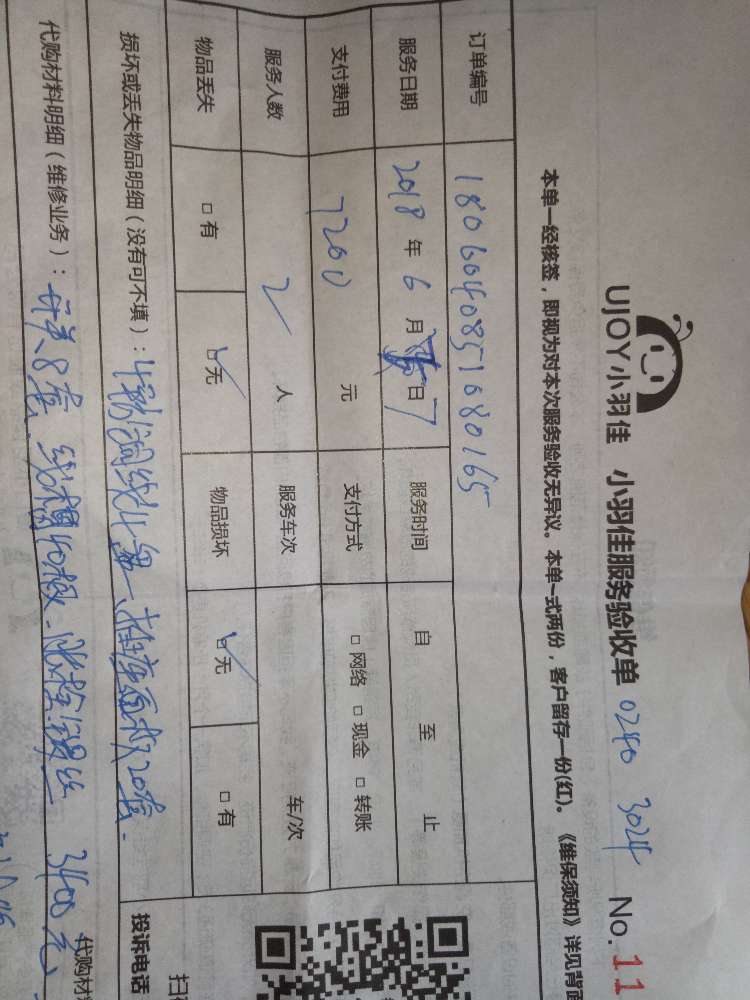 UJOY小羽佳 小羽佳服务验收单 0240 3024 No. 11
本单一经核签，即视为对本次服务验收无异议。本单一式两份，客户留存一份(红)。《维保须知》详见背面
订单编号 1806040851680165
服务日期 2018 年 6 月 7 日 服务时间 自 至 止
支付费用 7200 元 支付方式 □ 网络 □ 现金 □ 转账
服务人数 2 人 服务车次 车/次
物品丢失 □ 有 □ 无 物品损坏 □ 无 □ 有
损坏或丢失物品明细（没有可不填）： 插座面板20套.
代购材料明细（维修业务）： 开关8套 3400元
代购材
投诉电话
扫